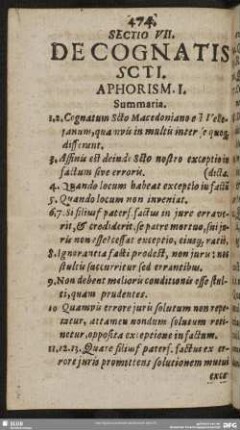 474.
SECTIO VII.
DE COGNATIS
SCTI.
APHORISM. I.
Summaria.
1.2. Cognatum Scto Macedoniano est Velle-
ianum, quamvis in multis inter se quoq;
differant.
3. Affinis est deinde Scto nostro exceptio in
factum sive erroris. (dicta.
4. Quando locum habeat exceptio in factū
5. Quando locum non inveniat.
6.7. Si filiusf. patersf. factus in jure errave-
rit, & crediderit, se patre mortuo, sui ju-
ris non esse: cessat exceptio, eiusq; ratio.
8. Ignorantia facti prodest, non juris: nec
stultis succurritur sed errantibus.
9. Non debent melioris conditionis esse stul-
ti, quam prudentes.
10 Quamvis errore juris solutum non repe-
tatur, attamen nondum solutum reti-
netur, opposita exceptione in factum.
11.12.13. Quare filiusf. patersf. factus ex er-
rore juris promittens solutionem mutui
exce